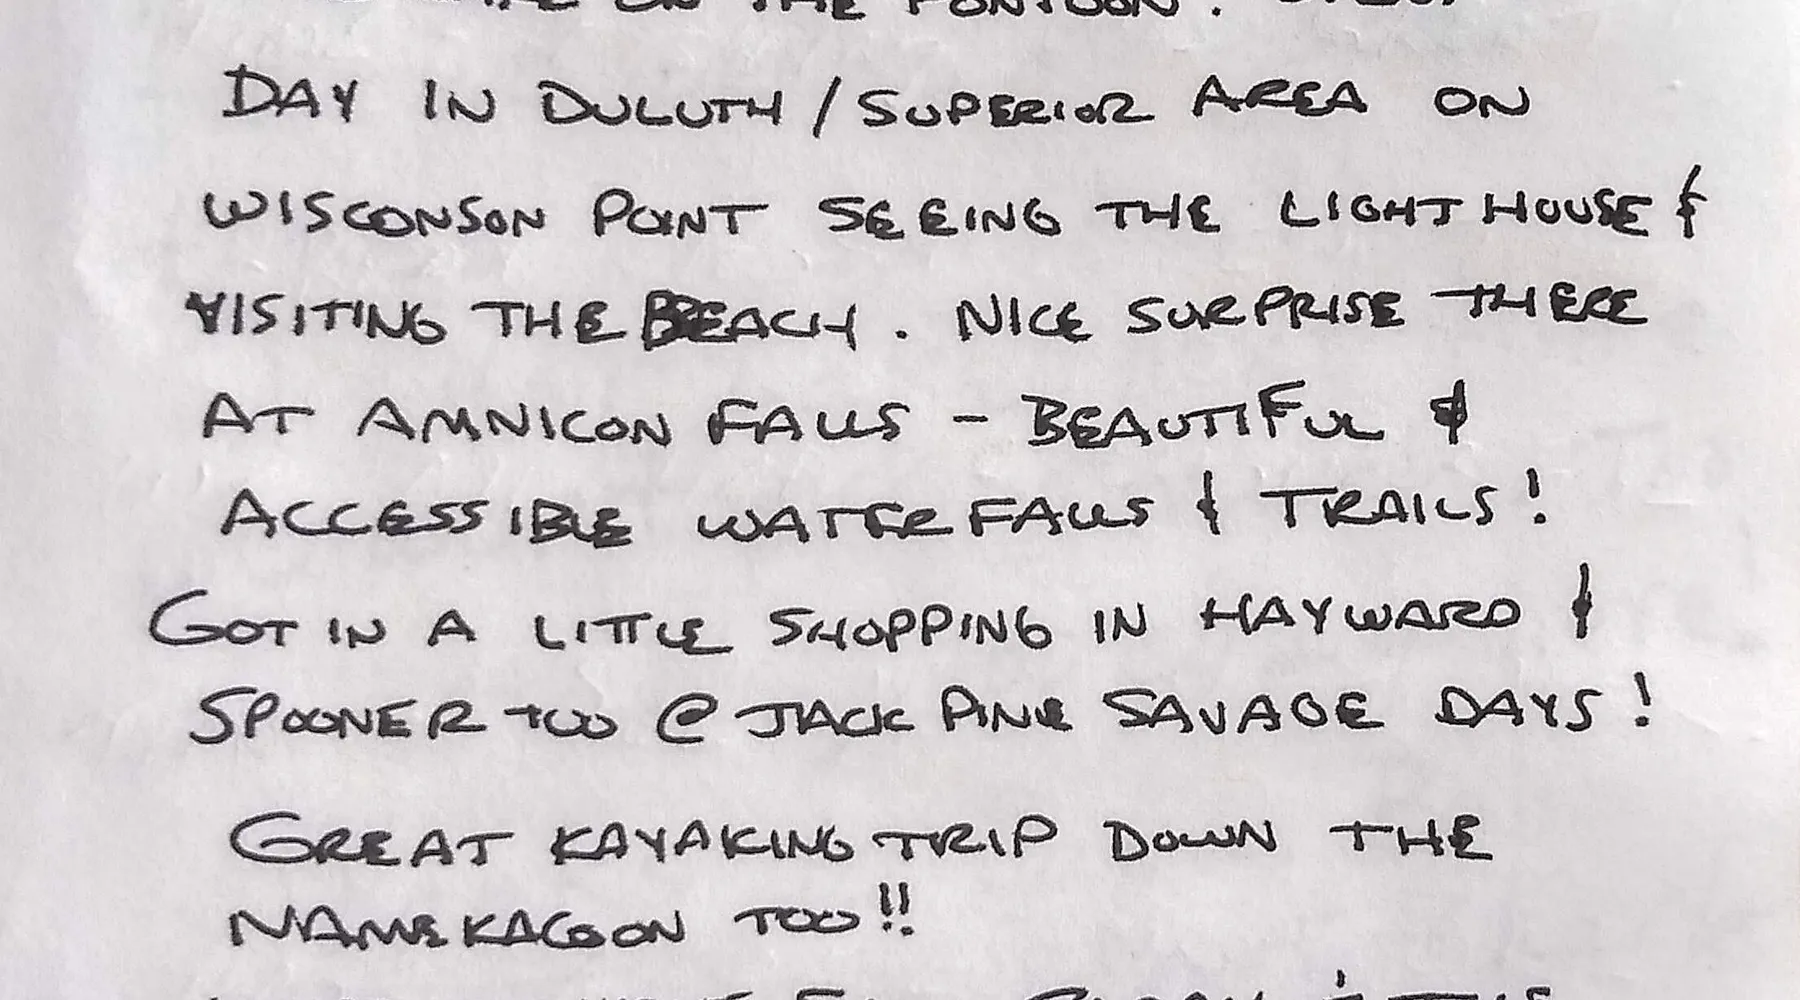 ON THE PONTOON.
DAY IN DULUTH / SUPERIOR AREA ON
WISCONSON POINT SEEING THE LIGHTHOUSE &
VISITING THE BEACH. NICE SURPRISE THERE
AT AMNICON FALLS - BEAUTIFUL &
ACCESSIBLE WATERFALLS & TRAILS!
GOT IN A LITTLE SHOPPING IN HAYWARD &
SPOONER TOO @ JACK PINE SAVAGE DAYS!
GREAT KAYAKING TRIP DOWN THE
NAMEKAGOON TOO!!